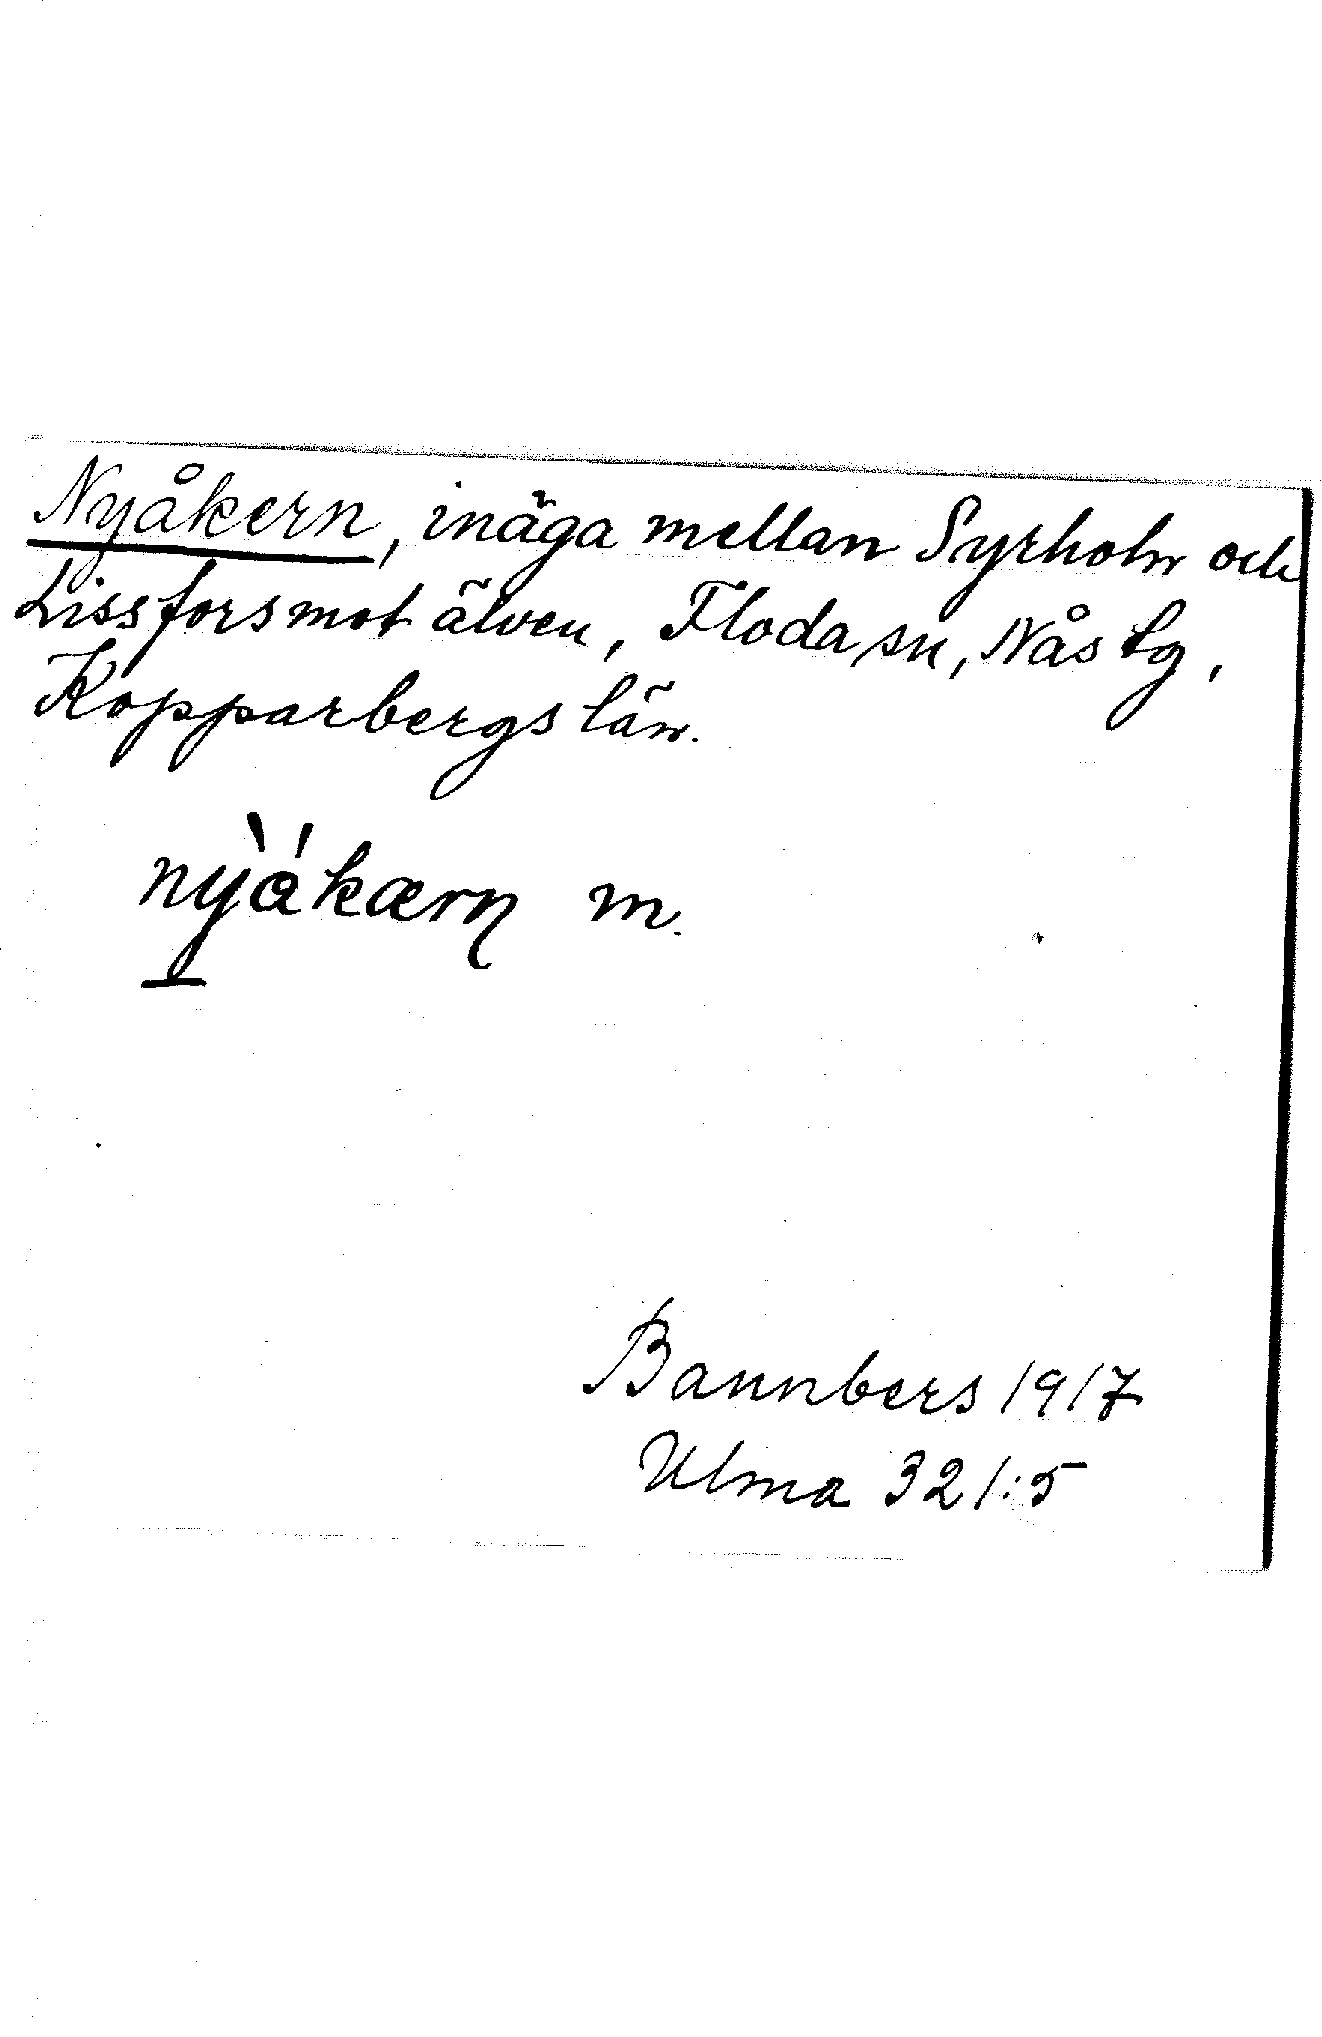 Nyåkern, inäga mellan Syrholn och
Lissfors mot älven, Floda sn, Nås tg,
Kopparbergs län.
nỳåkærn m.
Bannbers 1917
Ulma 321:5